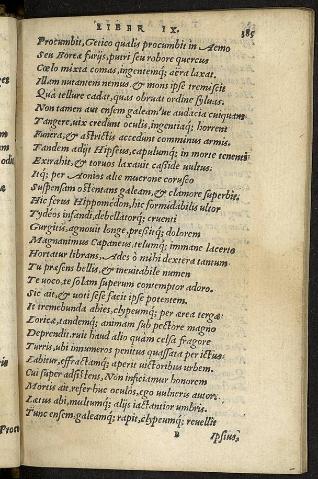 LIBER IX. 385
Procumbit, Getico qualis procumbit in Aemo
Seu Boreæ furijs, putri seu robore quercus
Cœlo mixta comas, ingentemq; aëra laxat.
Illam nutantem nemus, & mons ipse tremiscit
Quà tellure cadat, quas obruat ordine syluas.
Non tamen aut ensem galeam'ue audacia cuiquam
Tangere, uix credunt oculis, ingentiaq; horrent
Funera, & astrictis accedunt comminus armis.
Tandem adijt Hipseus, capulumq; in morte tenenti
Extrahit, & toruos laxauit caside uultus.
Itq; per Aonios alte mucrone corusco
Suspensam ostentans galeam, & clamore superbit.
Hic ferus Hippomedon, hic formidabilis ultor
Tydeos infandi, debellatorq; cruenti
Gurgitis, agnouit longe, pressitq; dolorem
Magnanimus Capaneus, telumq; immane lacerto
Hortatur librans, Ades ò mihi dextera tantum
Tu præsens bellis, & ineuitabile numen
Te uoco, te solam superum contemptor adoro.
Sic ait, & uoti sese facit ipse potentem.
It tremebunda abies, clypeumq; per ærea terga
Loricæ, tandemq; animam sub pectore magno
Deprendit. ruit haud alio quam celsa fragore
Turris, ubi innumeros penitus quassata per ictus
Labitur, effractamq; aperit uictoribus urbem.
Cui super adsistens, Non inficiamur honorem
Mortis ait, refer huc oculos, ego uulneris autor.
Lætus abi, multumq; alijs iactantior umbris.
Tunc ensem, galeamq; rapit, clypeumq; reuellit
B Ipsius,